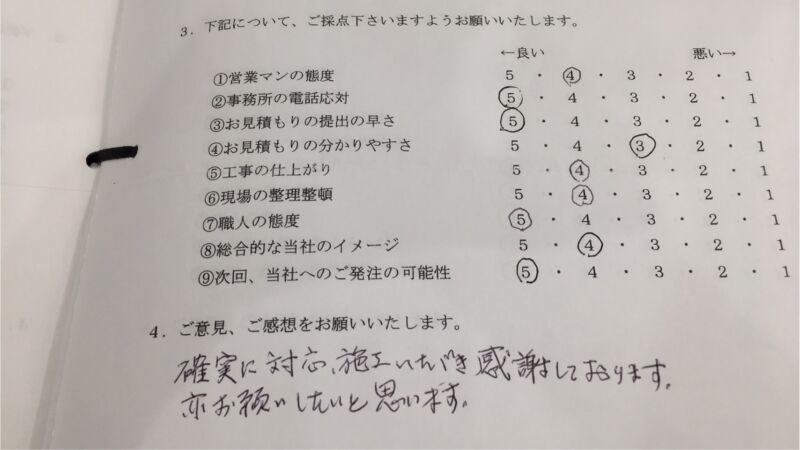 3．下記について、ご採点下さいますようお願いいたします。
←良い 悪い→
①営業マンの態度 5 ・ 4 ・ 3 ・ 2 ・ 1
②事務所の電話応対 5 ・ 4 ・ 3 ・ 2 ・ 1
③お見積もりの提出の早さ 5 ・ 4 ・ 3 ・ 2 ・ 1
④お見積もりの分かりやすさ 5 ・ 4 ・ 3 ・ 2 ・ 1
⑤工事の仕上がり 5 ・ 4 ・ 3 ・ 2 ・ 1
⑥現場の整理整頓 5 ・ 4 ・ 3 ・ 2 ・ 1
⑦職人の態度 5 ・ 4 ・ 3 ・ 2 ・ 1
⑧総合的な当社のイメージ 5 ・ 4 ・ 3 ・ 2 ・ 1
⑨次回、当社へのご発注の可能性 5 ・ 4 ・ 3 ・ 2 ・ 1
4．ご意見、ご感想をお願いいたします。
確実に対応、施工いただき感謝しております。
亦お願いしたいと思います。